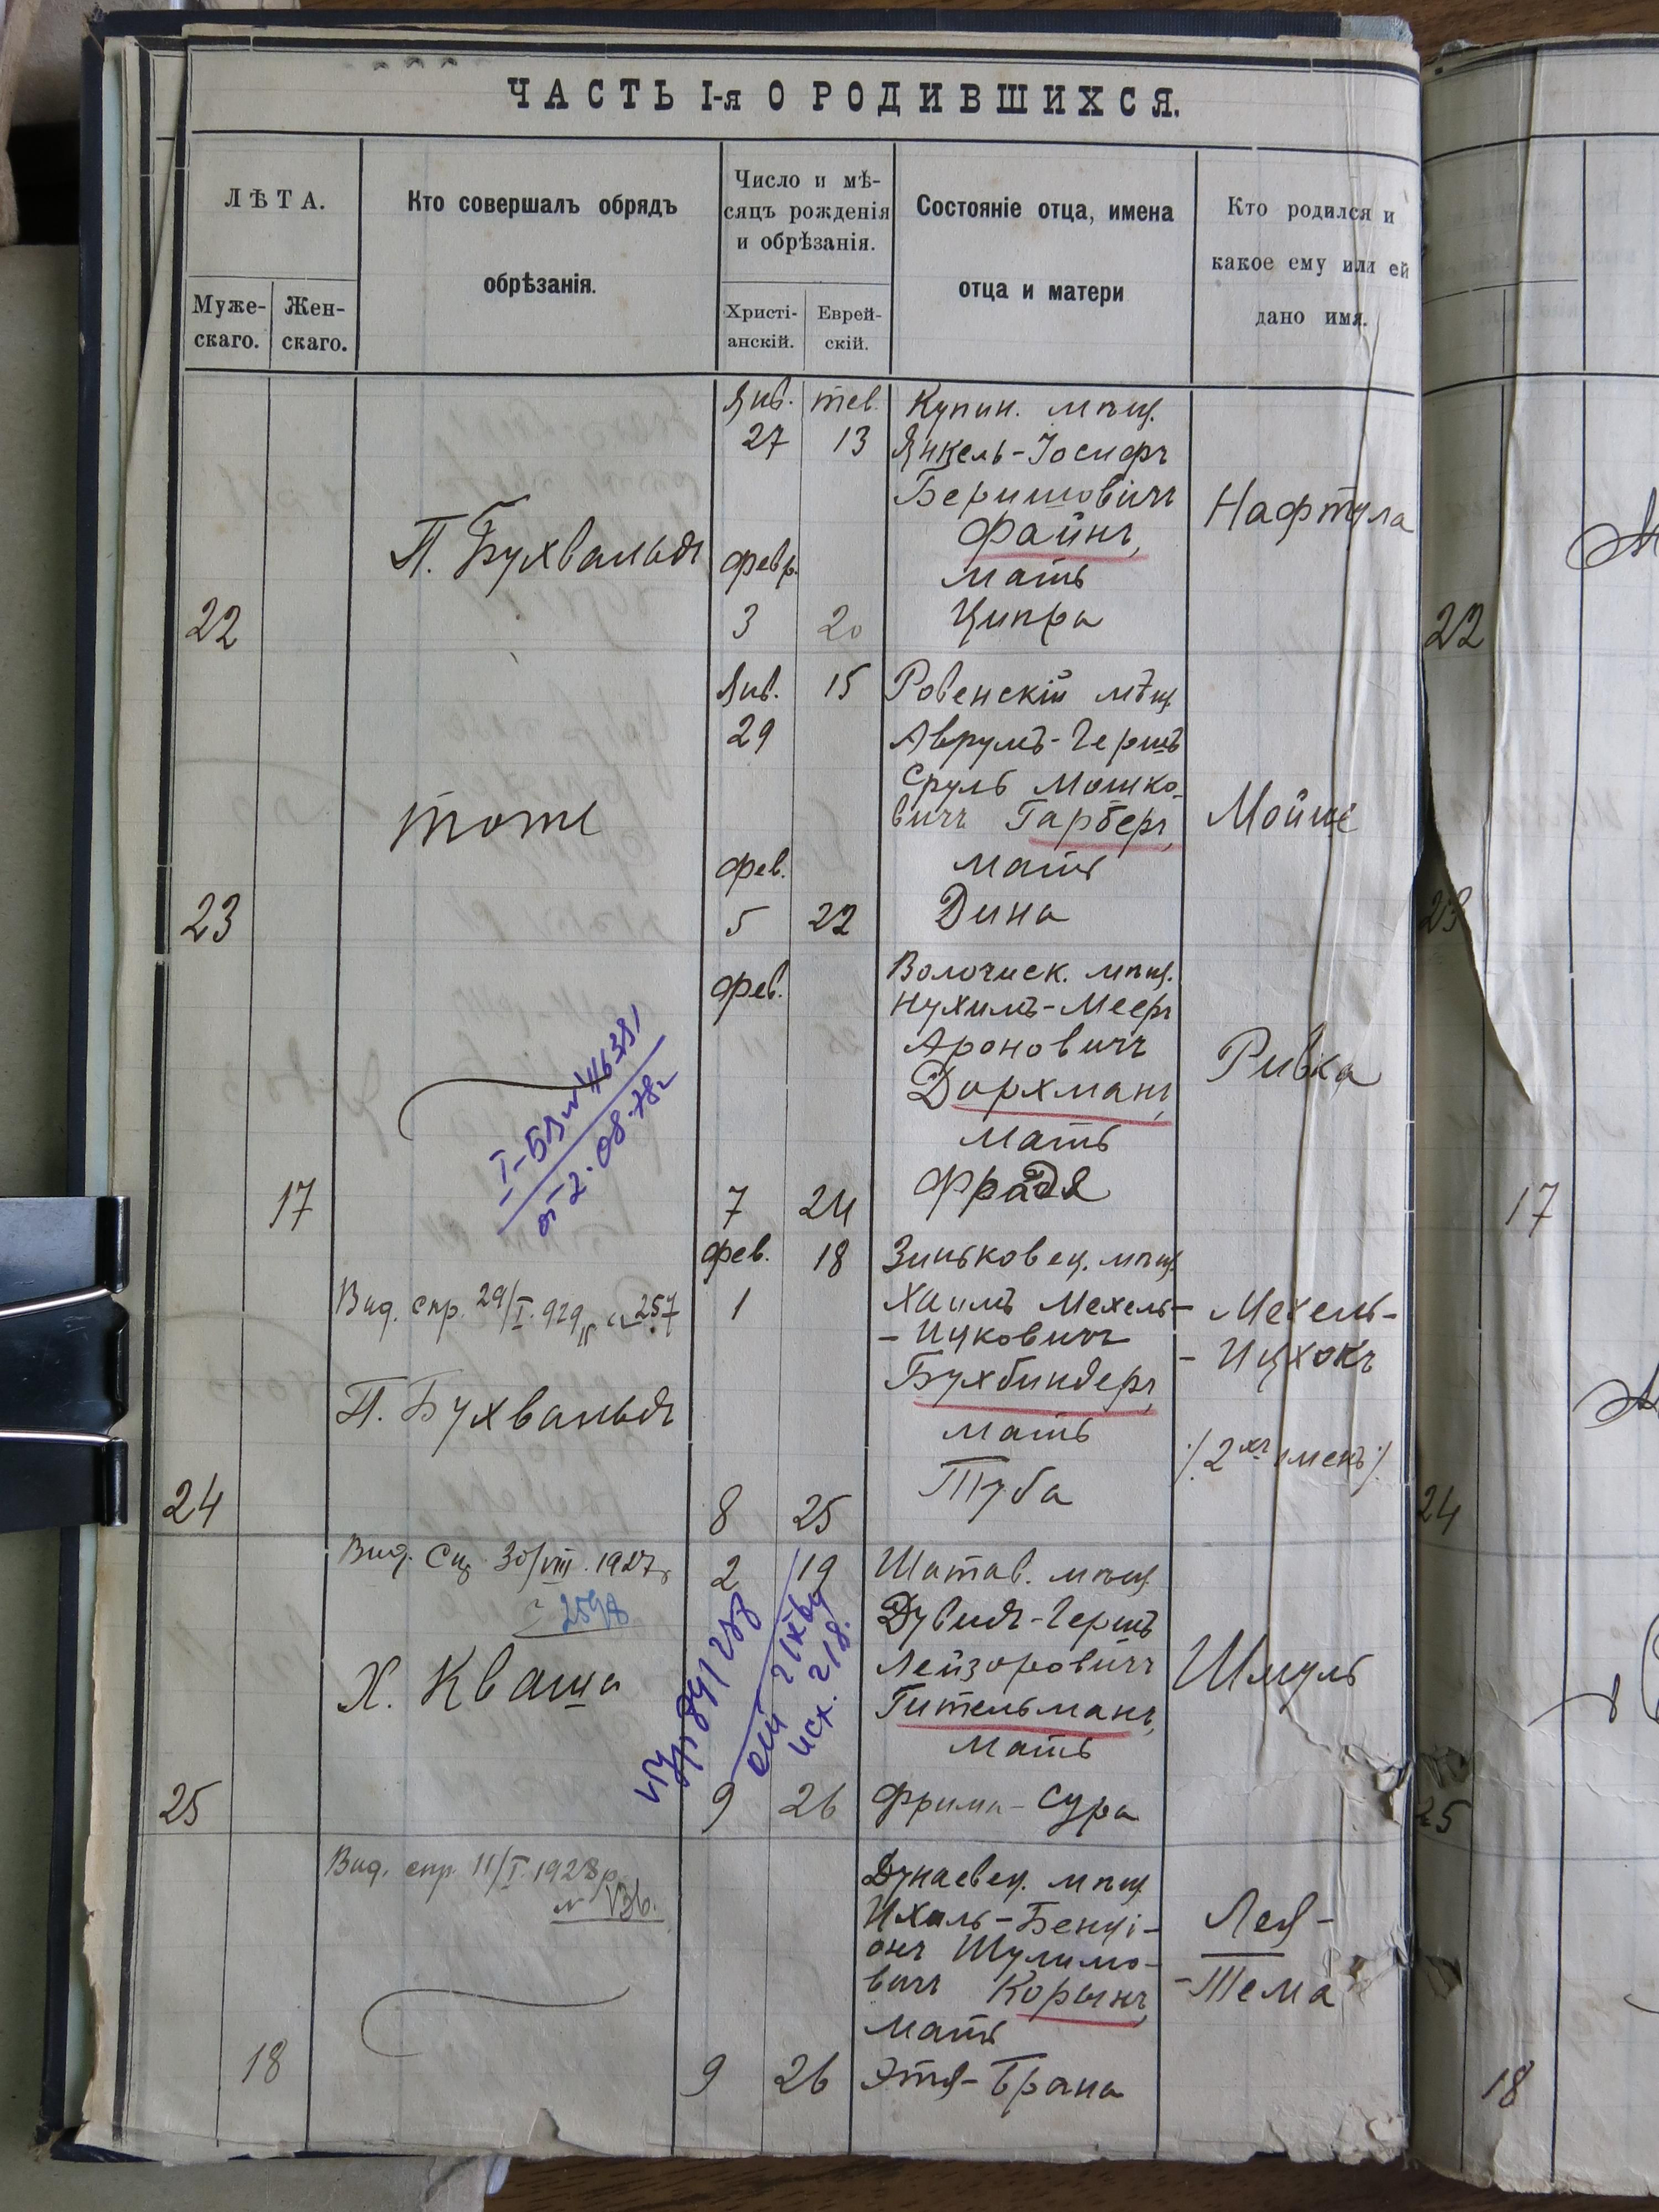 ЧАСТЬ I-я О РОДИВШИХСЯ.
ЛѢТА.
Муже-
скаго.
Жен-
скаго.
Кто совершалъ обрядъ
обрѣзанія.
Число и мѣ-
сяцъ рожденія
и обрѣзанія.
Христі-
анскій.
Еврей-
скій.
Состояніе отца, имена
отца и матери
Кто родился и
какое ему или ей
дано имя.
22
П. Бухвальдъ
Янв. тев.
27 13
февр.
3 20
Купин. мѣщ.
Янкель-Іосифъ
Беришовичъ
Файнъ,
мать
Ципра
Нафтула
22
23
тоже
Янв. 15
29
фев.
5 22
Ровенскій мѣщ.
Аврумъ-Гершъ
Сруль Мошко-
вичъ Гарберъ,
мать
Дина
Мойше
23
17
фев.
7 24
Волочиск. мѣщ.
Нухимъ-Мееръ
Ароновичъ
Дорхманъ,
мать
Фрадя
Ривка
17
24
Вид. спр. 29/I. 929 257
П. Бухвальдъ
фев. 18
1
8 25
Зиньковец. мѣщ.
Хаимъ Мехель-
- Ицковичъ
Бухбиндеръ,
мать
Туба
Мехель-
- Ицхокъ
/2хъ именъ/
24
25
Вид. 30/VIII. 1927
Х. Кваша
2 19
исх. 218.
9 26
Шатав. мѣщ.
Дувидъ-Гершъ
Лейзоровичъ
Гительманъ,
мать
Фрима-Сура
Шмуль
25
18
Вид. спр. 11/I. 1928р.
9 26
Дунаевец. мѣщ.
Ихиль-Бенці-
онъ Шулимо-
вичъ Корынъ,
мать
Этя-Брана
Лея-
-Тема
18